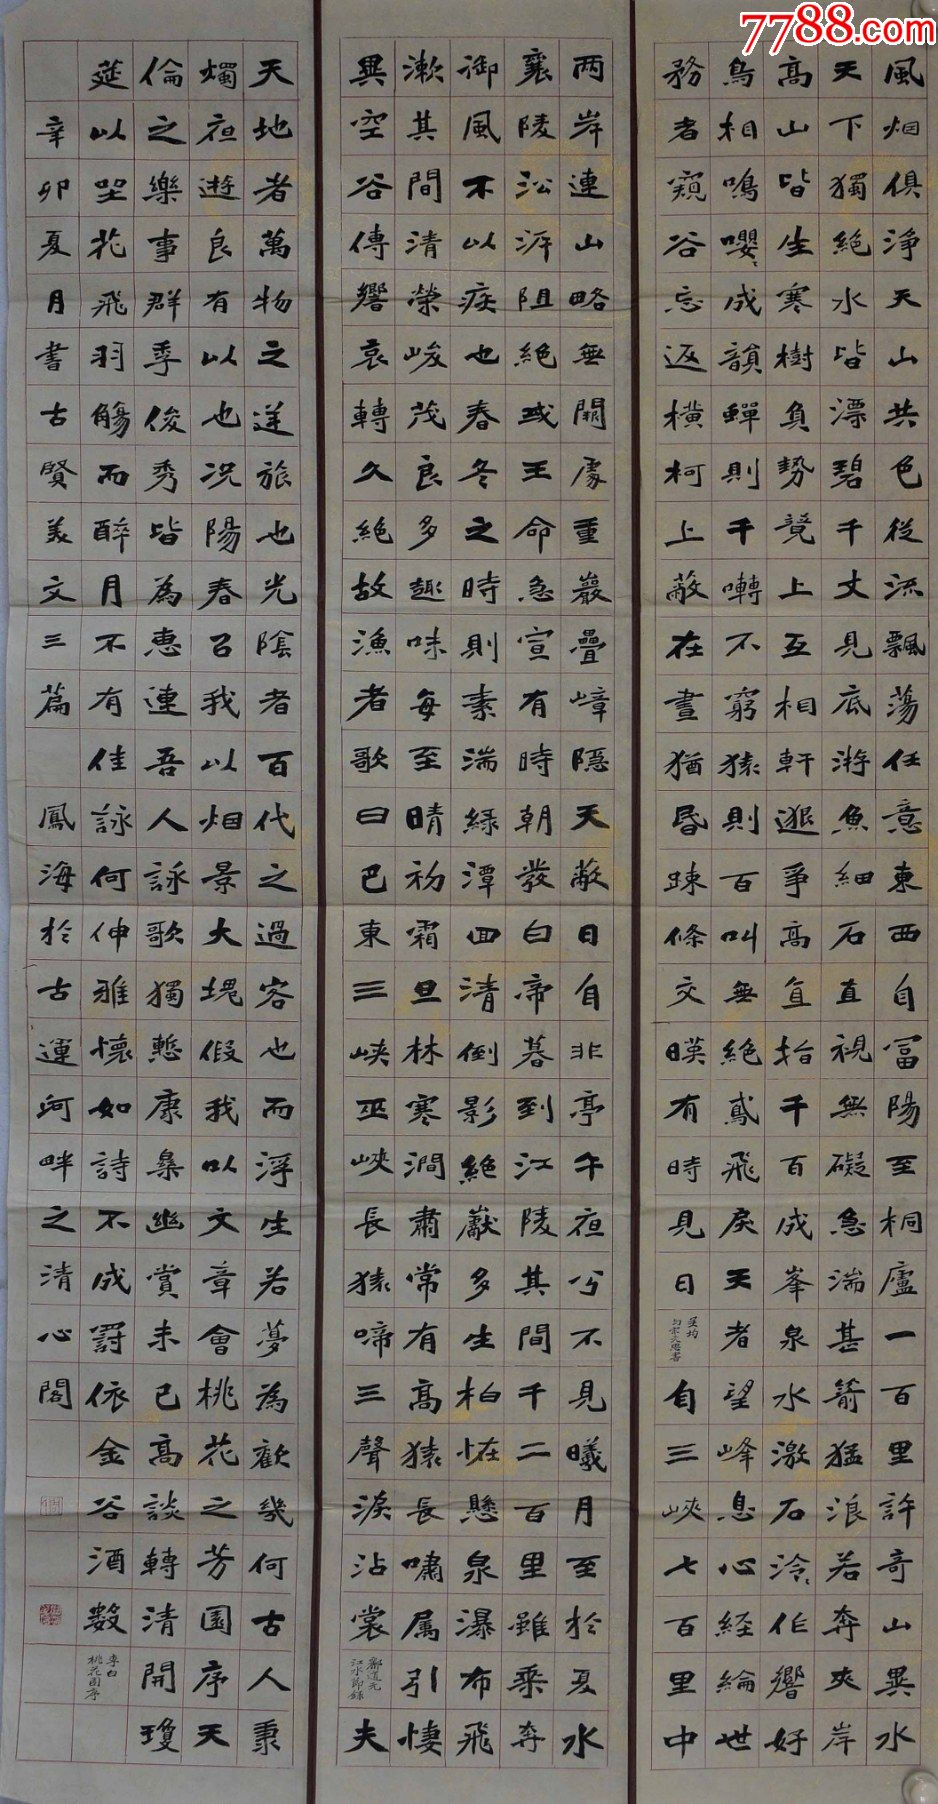 7788.com
風烟俱浄天山共色從流飄蕩任意東西自富陽至桐廬一百里許奇山異水
天下獨絕水皆漂碧千丈見底游魚細石直視無礙急湍甚箭猛浪若奔夾岸
高山皆生寒樹負勢競上互相軒邈爭高直指千百成峯泉水激石泠、作響好
鳥相鳴嚶、成韻蟬則千囀不窮猿則百叫無絕鳶飛戾天者望峰息心經綸世
務者窺谷忘返橫柯上蔽在晝猶昏踈條交暎有時見日
吳均
与宋元思書
自三峽七百里中
兩岸連山略無闕處重巖疊嶂隱天蔽日自非亭午夜兮不見曦月至於夏水
襄陵沿泝阻絕或王命急宣有時朝發白帝暮到江陵其間千二百里雖乘奔
御風不以疾也春冬之時則素湍綠潭回清倒影絕巘多生柏怪懸泉瀑布飛
漱其間清榮峻茂良多趣味每至晴初霜旦林寒澗肅常有高猿長嘯属引悽
異空谷傳響哀轉久絕故漁者歌曰巴東三峽巫峽長猿啼三聲淚沾裳
酈道元
江水節錄
夫
天地者萬物之逆旅也光陰者百代之過客也而浮生若夢為歡幾何古人秉
燭夜遊良有以也況陽春召我以烟景大塊假我以文章會桃花之芳園序天
倫之樂事群季俊秀皆為惠連吾人詠歌獨慙康樂幽賞未已高談轉清開瓊
筵以坐花飛羽觴而醉月不有佳詠何伸雅懷如詩不成罰依金谷酒數
李白
桃花園序
辛卯夏月書古賢美文三篇 鳳海於古運河畔之清心閣